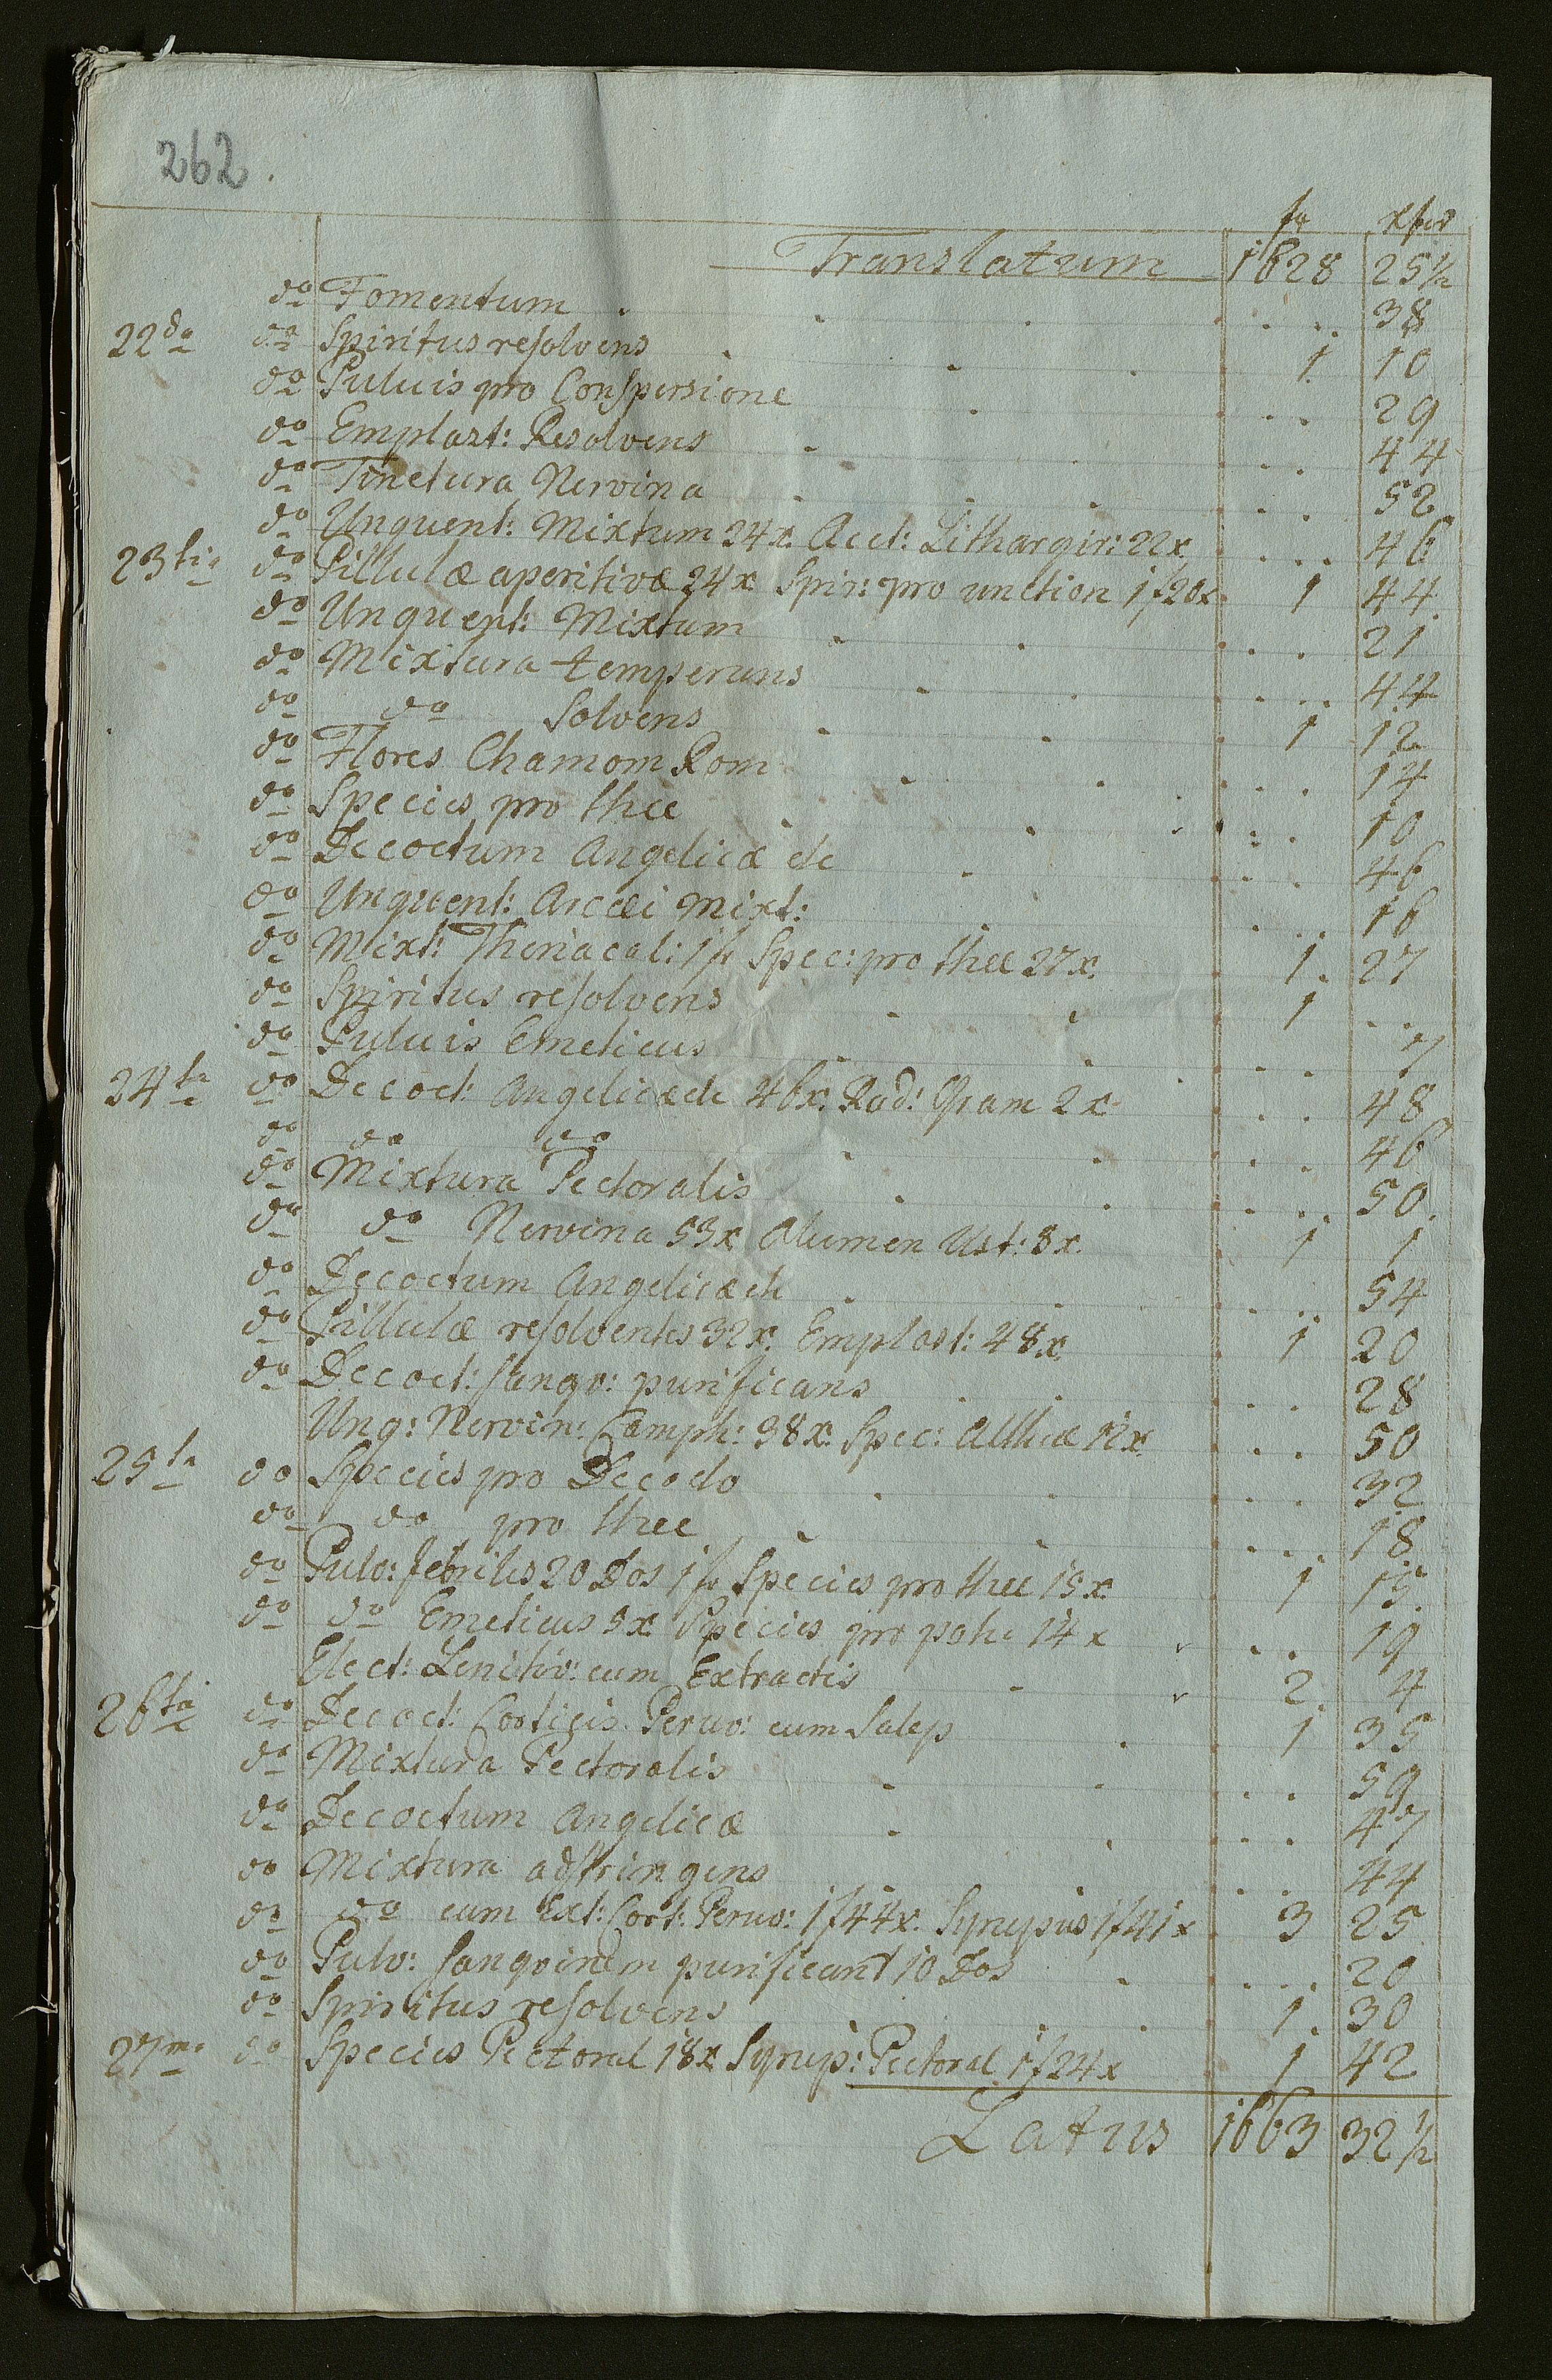 262.
fr xfer
Translatum 1628 25½
do Fomentum . . . . . 38
22da do Spiritus resolvens . . . 1. 10
do Pulvis pro Conspersione . . . . 29
do Emplast: Resolvens . . . 44
do Tinctura Nervina . . . . 52
do Unguent: Mixtum 24x. Acet: Lithargir: 22x . . . 46
23tia do Pillulæ aperitivæ 24x Spir: pro unction 1f20x 1 44.
do Unguent: Mixtum . . . . . 21
do Mixtura temperans . . . . . 44
do do Solvens . . 1 12
do Flores Chamom Rom . . . . . 14
do Species pro thee . . . . 10
do Decoctum Angelicæ etc . . . . 46
do Unguent: Arcæi Mixt: . . . 16
do Mixt: Theriacal: 1fr Spec: pro thee 27x. 1. 27
do Spiritus resolvens . . 1 . .
do Pulvis Emeticus . . . . . 7
24ta do Decoct: Angelicæ etc 46x. Rad: Gram 2x . . 48
do do do . . . . 46
do Mixtura Pectoralis . . . . . 50.
do do Nervina 53x Alumen Ust: 8x. 1 1
do Decoctum Angelicæ etc . . . . 54
do Pillulæ resolventes 32x. Emplast: 48x. 1 20
do Decoct: sangv: purificans . . . . 28
Ung: Nervin: Camph: 38x. Spec: Altheæ 12x. . . 50
25ta do Species pro Decocto . . . . 32
do do pro thee . . . . . 18
do Pulv: febriles 20 Dos 1fr Species pro thee 15x. 1 15.
do do Emeticus 5x. Species pro potu 14x . . 19
Elect: Lenitiv: cum Extractis . 2. 4
26ta do Decoct: Corticis. Peruv: cum Salep . 1 35
do Mixtura Pectoralis . . . . 59
do Decoctum Angelicæ . . . . . 47
do Mixtura adstringens . . 44
do do cum Ext: Cort: Peruv: 1f44x. Syrupus 1f41x 3 25
do Pulv: sangvinem purificant 10 Dos . . . . 20
do Spiritus resolvens . 1. 30
27ma do Species Pectoral 18x Syrup: Pectoral 1f24x 1 42
Latus 1663 32½